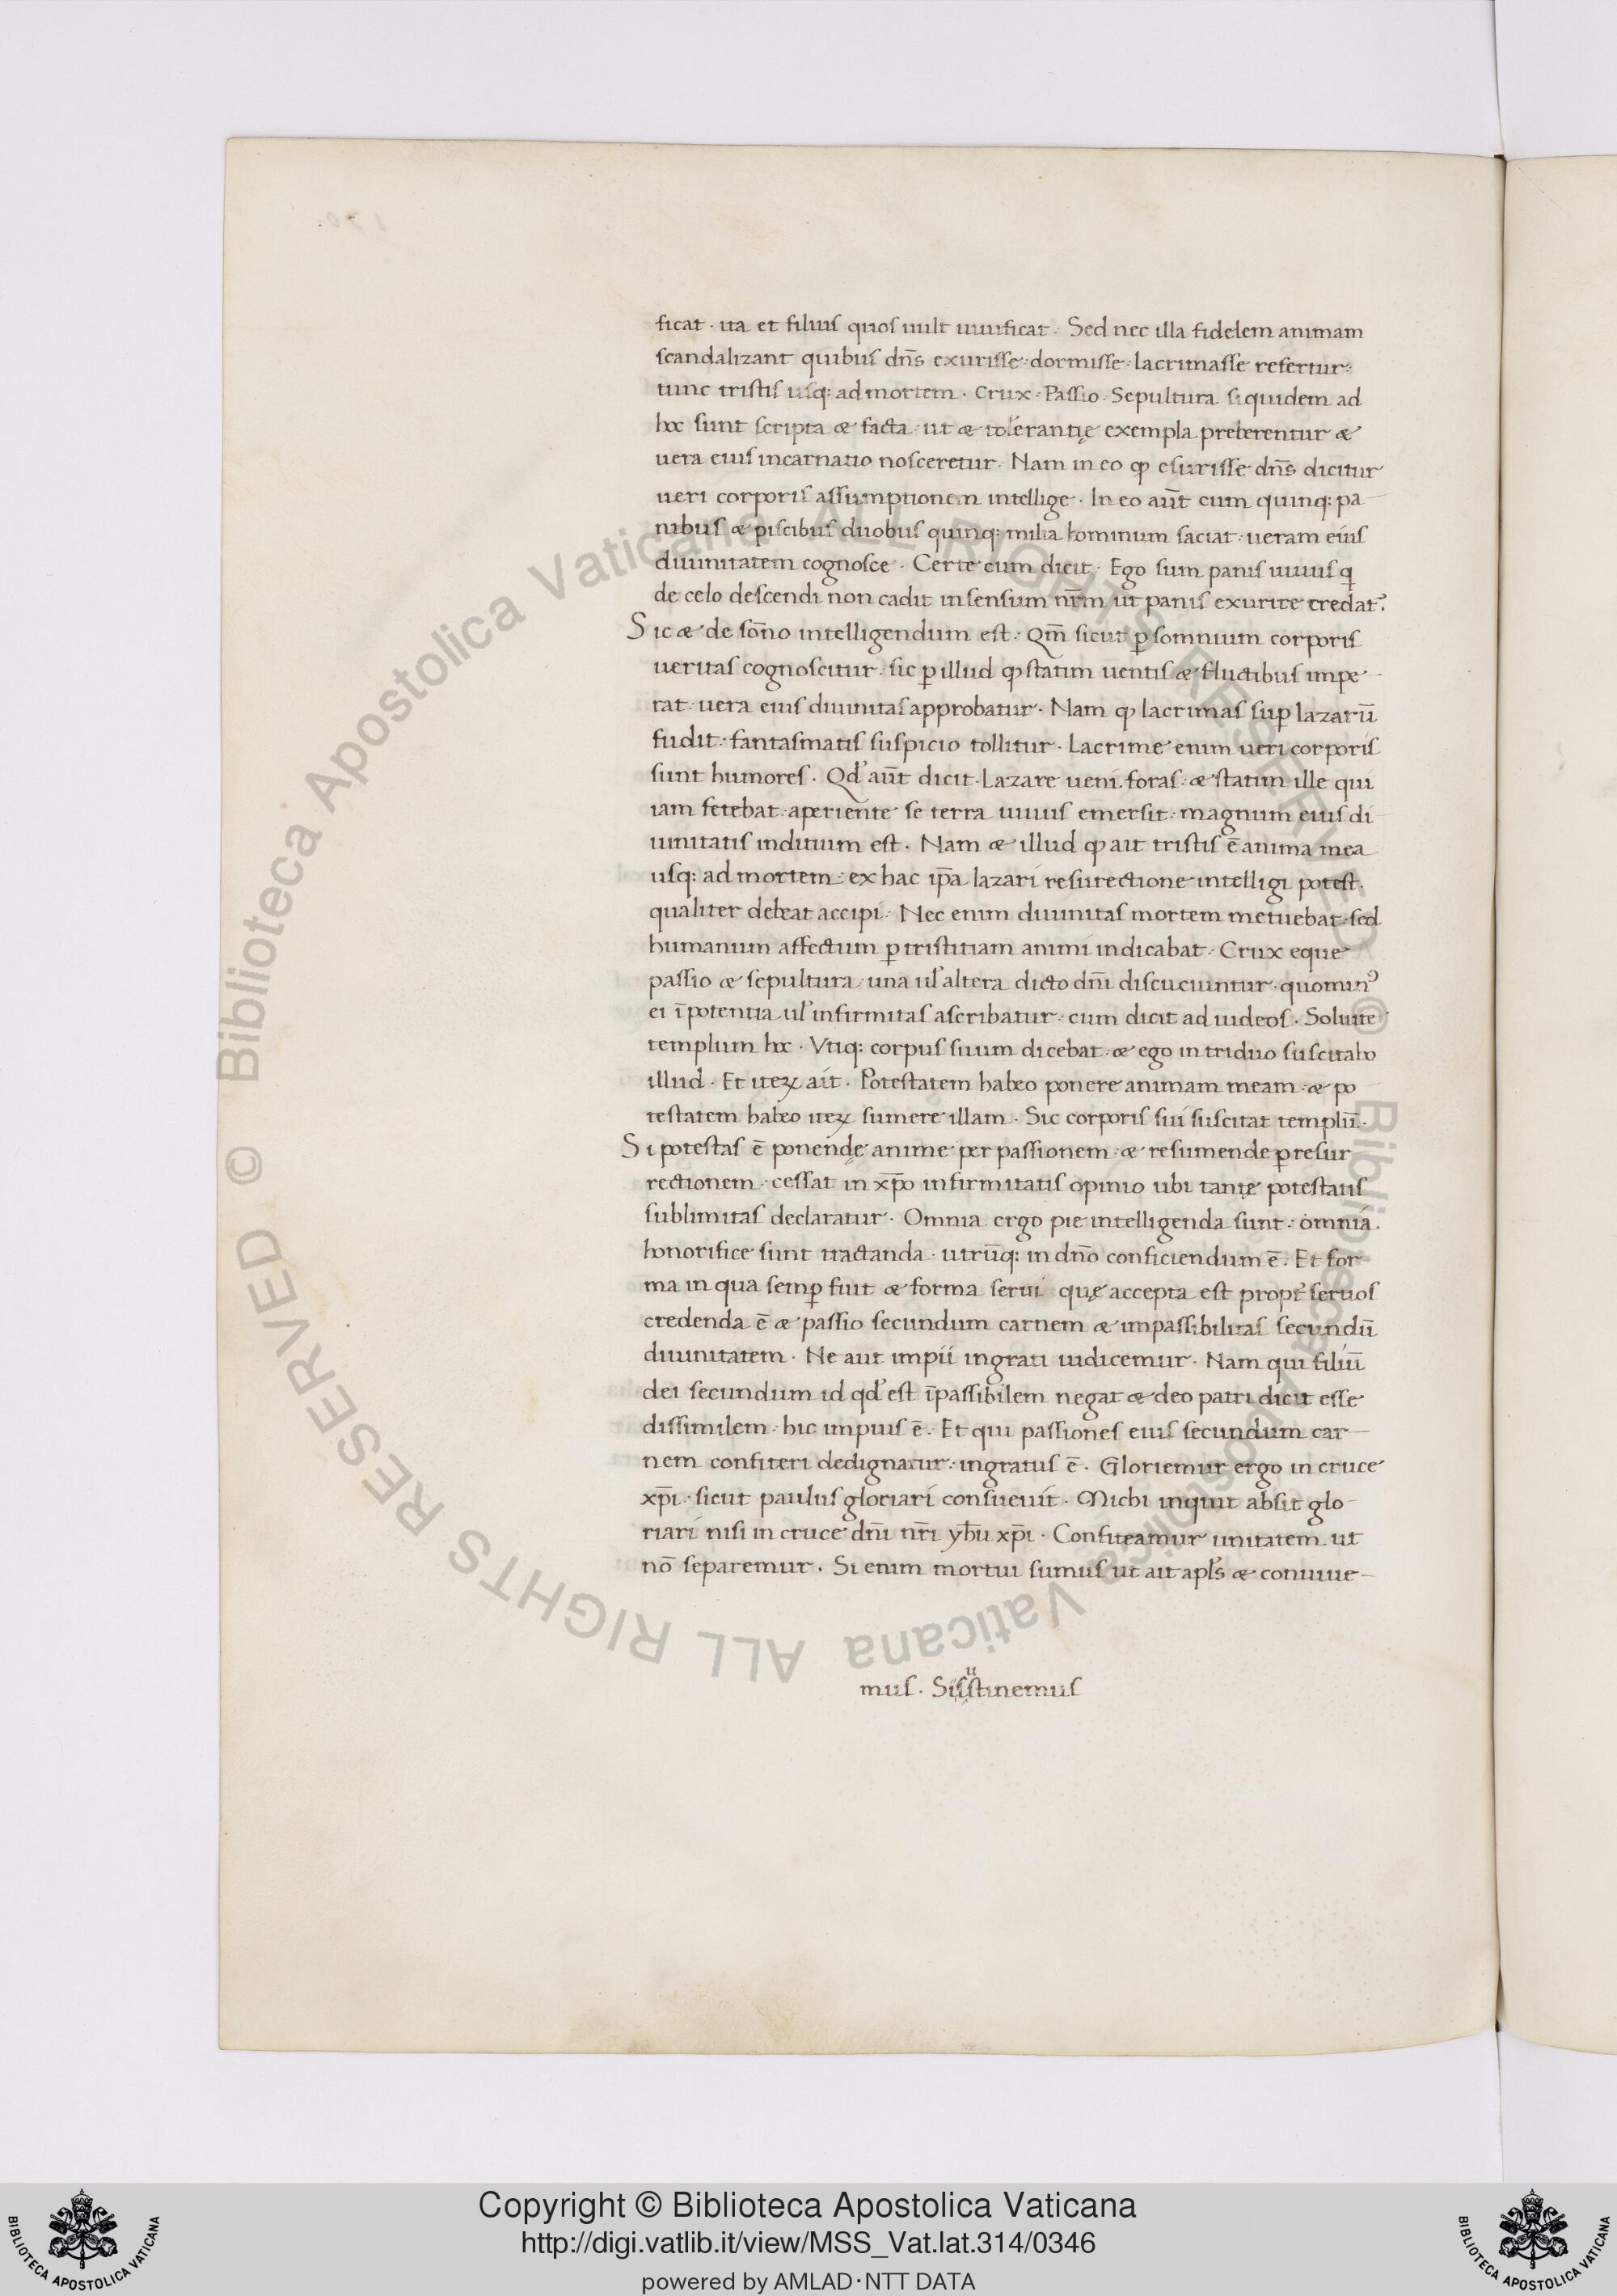 ficat · ita et filius quos uult uiuificat · Sed nec illa fidelem animam
scandalizant quibus dn̄s exurisse · dormisse · lacrimasse refertur ·
tunc tristis usq: ad mortem · Crux · Passio · Sepultura siquidem ad
hoc sunt scripta & facta · ut & tolerantię exempla preberentur &
uera eius incarnatio nosceretur · Nam in eo ꝙ esurisse dn̄s dicitur
ueri corporis assumptionem intellige · In eo aūt cum quinq: pa
nibus & piscibus duobus quinq: milia hominum saciat · ueram eius
diuinitatem cognosce · Certe cum dicit · Ego sum panis uiuus q
de celo descendi non cadit in sensum nr̄m ut panis exurire credat᷒
Sic & de sōno intelligendum est · Qm̄ sicut ꝑ somnium corporis
ueritas cognoscitur · sic ꝑ illud ꝙ statim uentis & fluctibus impe
rat · uera eius diuinitas approbatur · Nam ꝙ lacrimas suꝑ lazarū
fudit · fantasmatis suspicio tollitur · Lacrime enim ueri corporis
sunt humores · Qd' aūt dicit · Lazare ueni foras · & statim ille qui
iam fetebat · aperiente se terra uiuus emersit · magnum eius di
uinitatis inditium est · Nam & illud ꝙ ait tristis ē anima mea
usq: ad mortem · ex hac ip̄a lazari resurectione intelligi potest ·
qualiter debeat accipi · Nec enim diuinitas mortem metuebat · sed
humanum affectum ꝑ tristitiam animi indicabat · Crux eque
passio & sepultura · una ul' altera dicto dn̄i discuciuntur · quominꝰ
ei īpotentia ul' infirmitas ascribatur · cum dicit ad iudeos · Soluite
templum hoc · Vtiq: corpus suum dicebat · & ego in triduo suscitabo
illud · Et iteꝝ ait · Potestatem habeo ponere animam meam · & po
testatem habeo iteꝝ sumere illam · Sic corporis sui suscitat templū ·
Si potestas ē ponendę anime per passionem · & resumende ꝑ resur
rectionem · cessat in xp̄o infirmitatis opinio ubi tantę potestatis
sublimitas declaratur · Omnia ergo pie intelligenda sunt · omnia
honorifice sunt tractanda · utrūq: in dn̄o conficiendum ē · Et for
ma in qua semꝑ fuit & forma serui quę accepta est propt' seruos
credenda ē & passio secundum carnem & impassibilitas secundū
diuinitatem · Ne aut impii ingrati iudicemur · Nam qui filiū
dei secundum id qd' est īpassibilem negat & deo patri dicit esse
dissimilem · hic impius ē · Et qui passiones eius secundum car
nem confiteri dedignatur · ingratus ē · Gloriemur ergo in cruce
xp̄i · sicut paulus gloriari consueuit · Michi inquit absit glo
riari nisi in cruce dn̄i nr̄i yh̄u xp̄i · Confiteamur unitatem ut
nō separemur · Si enim mortui sumus ut ait apl's & conuiue
mus · Sisustinemus
Copyright © Biblioteca Apostolica Vaticana
http://digi.vatlib.it/view/MSS_Vat.lat.314/0346
powered by AMLAD·NTT DATA
BIBLIOTECA APOSTOLICA VATICANA
BIBLIOTECA APOSTOLICA VATICANA
© Biblioteca Apostolica Vaticana ALL RIGHTS RESERVED © Biblioteca Apostolica Vaticana ALL RIGHTS RESERVED